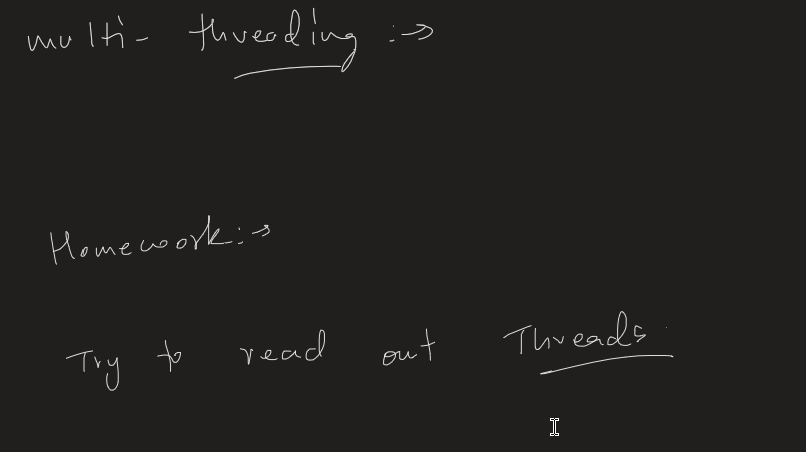 multi- threading :->
Homework :->
Try to read out Threads.